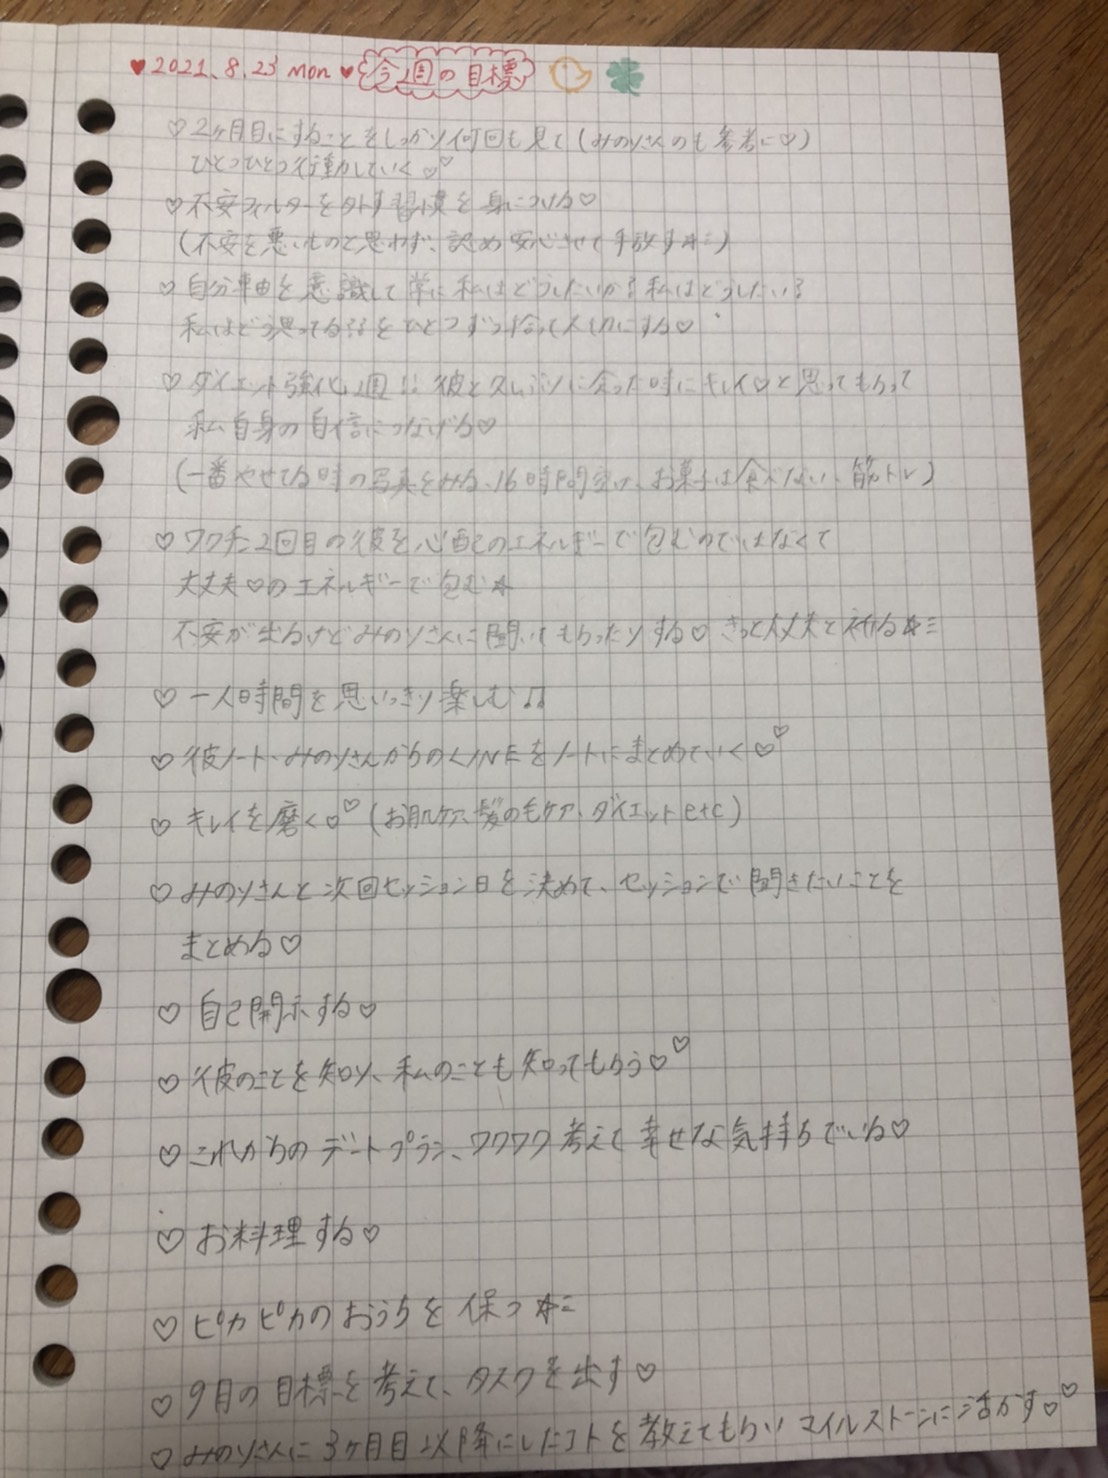 ♥2021.8.23 Mon♥ 今週の目標
♡2ヶ月目にすることをしっかり何回も見て(みのりさんのも参考に♡)
ひとつひとつ行動していく♡♡
♡不安フィルターを外す習慣を身につける♡
(不安を悪いものと思わず、認め安心させて手放す☆ミ)
♡自分軸を意識して常に私はどうしたいか?私はどうしたい?
私はどう思ってる??をひとつずつ拾って大切にする♡
♡ダイエット強化週!!彼と久しぶりに会った時にキレイ♡と思ってもらって
私自身の自信につなげる♡
(一番やせてる時の写真をみる、16時間空け、お菓子は食べない、筋トレ)
♡ワクチン2回目の彼を心配のエネルギーで包むのではなくて
大丈夫♡のエネルギーで包む☆
不安が出るけどみのりさんに聞いてもらったりする♡きっと大丈夫と祈る☆ミ
♡一人時間を思いっきり楽しむ♫
♡彼ノート・みのりさんからのLINEをノートにまとめていく♡♡
♡キレイを磨く♡♡(お肌ケア、髪の毛ケア、ダイエットetc)
♡みのりさんと次回セッション日を決めて、セッションで聞きたいことを
まとめる♡
♡自己開示する♡
♡彼のことを知り、私のことも知ってもらう♡♡
♡これからのデートプラン、ワクワク考えて幸せな気持ちでいる♡
♡お料理する♡
♡ピカピカのおうちを保つ☆ミ
♡9月の目標を考えて、タスクを出す♡
♡みのりさんに3ヶ月目以降にしたコトを教えてもらいマイルストーンに活かす♡♡